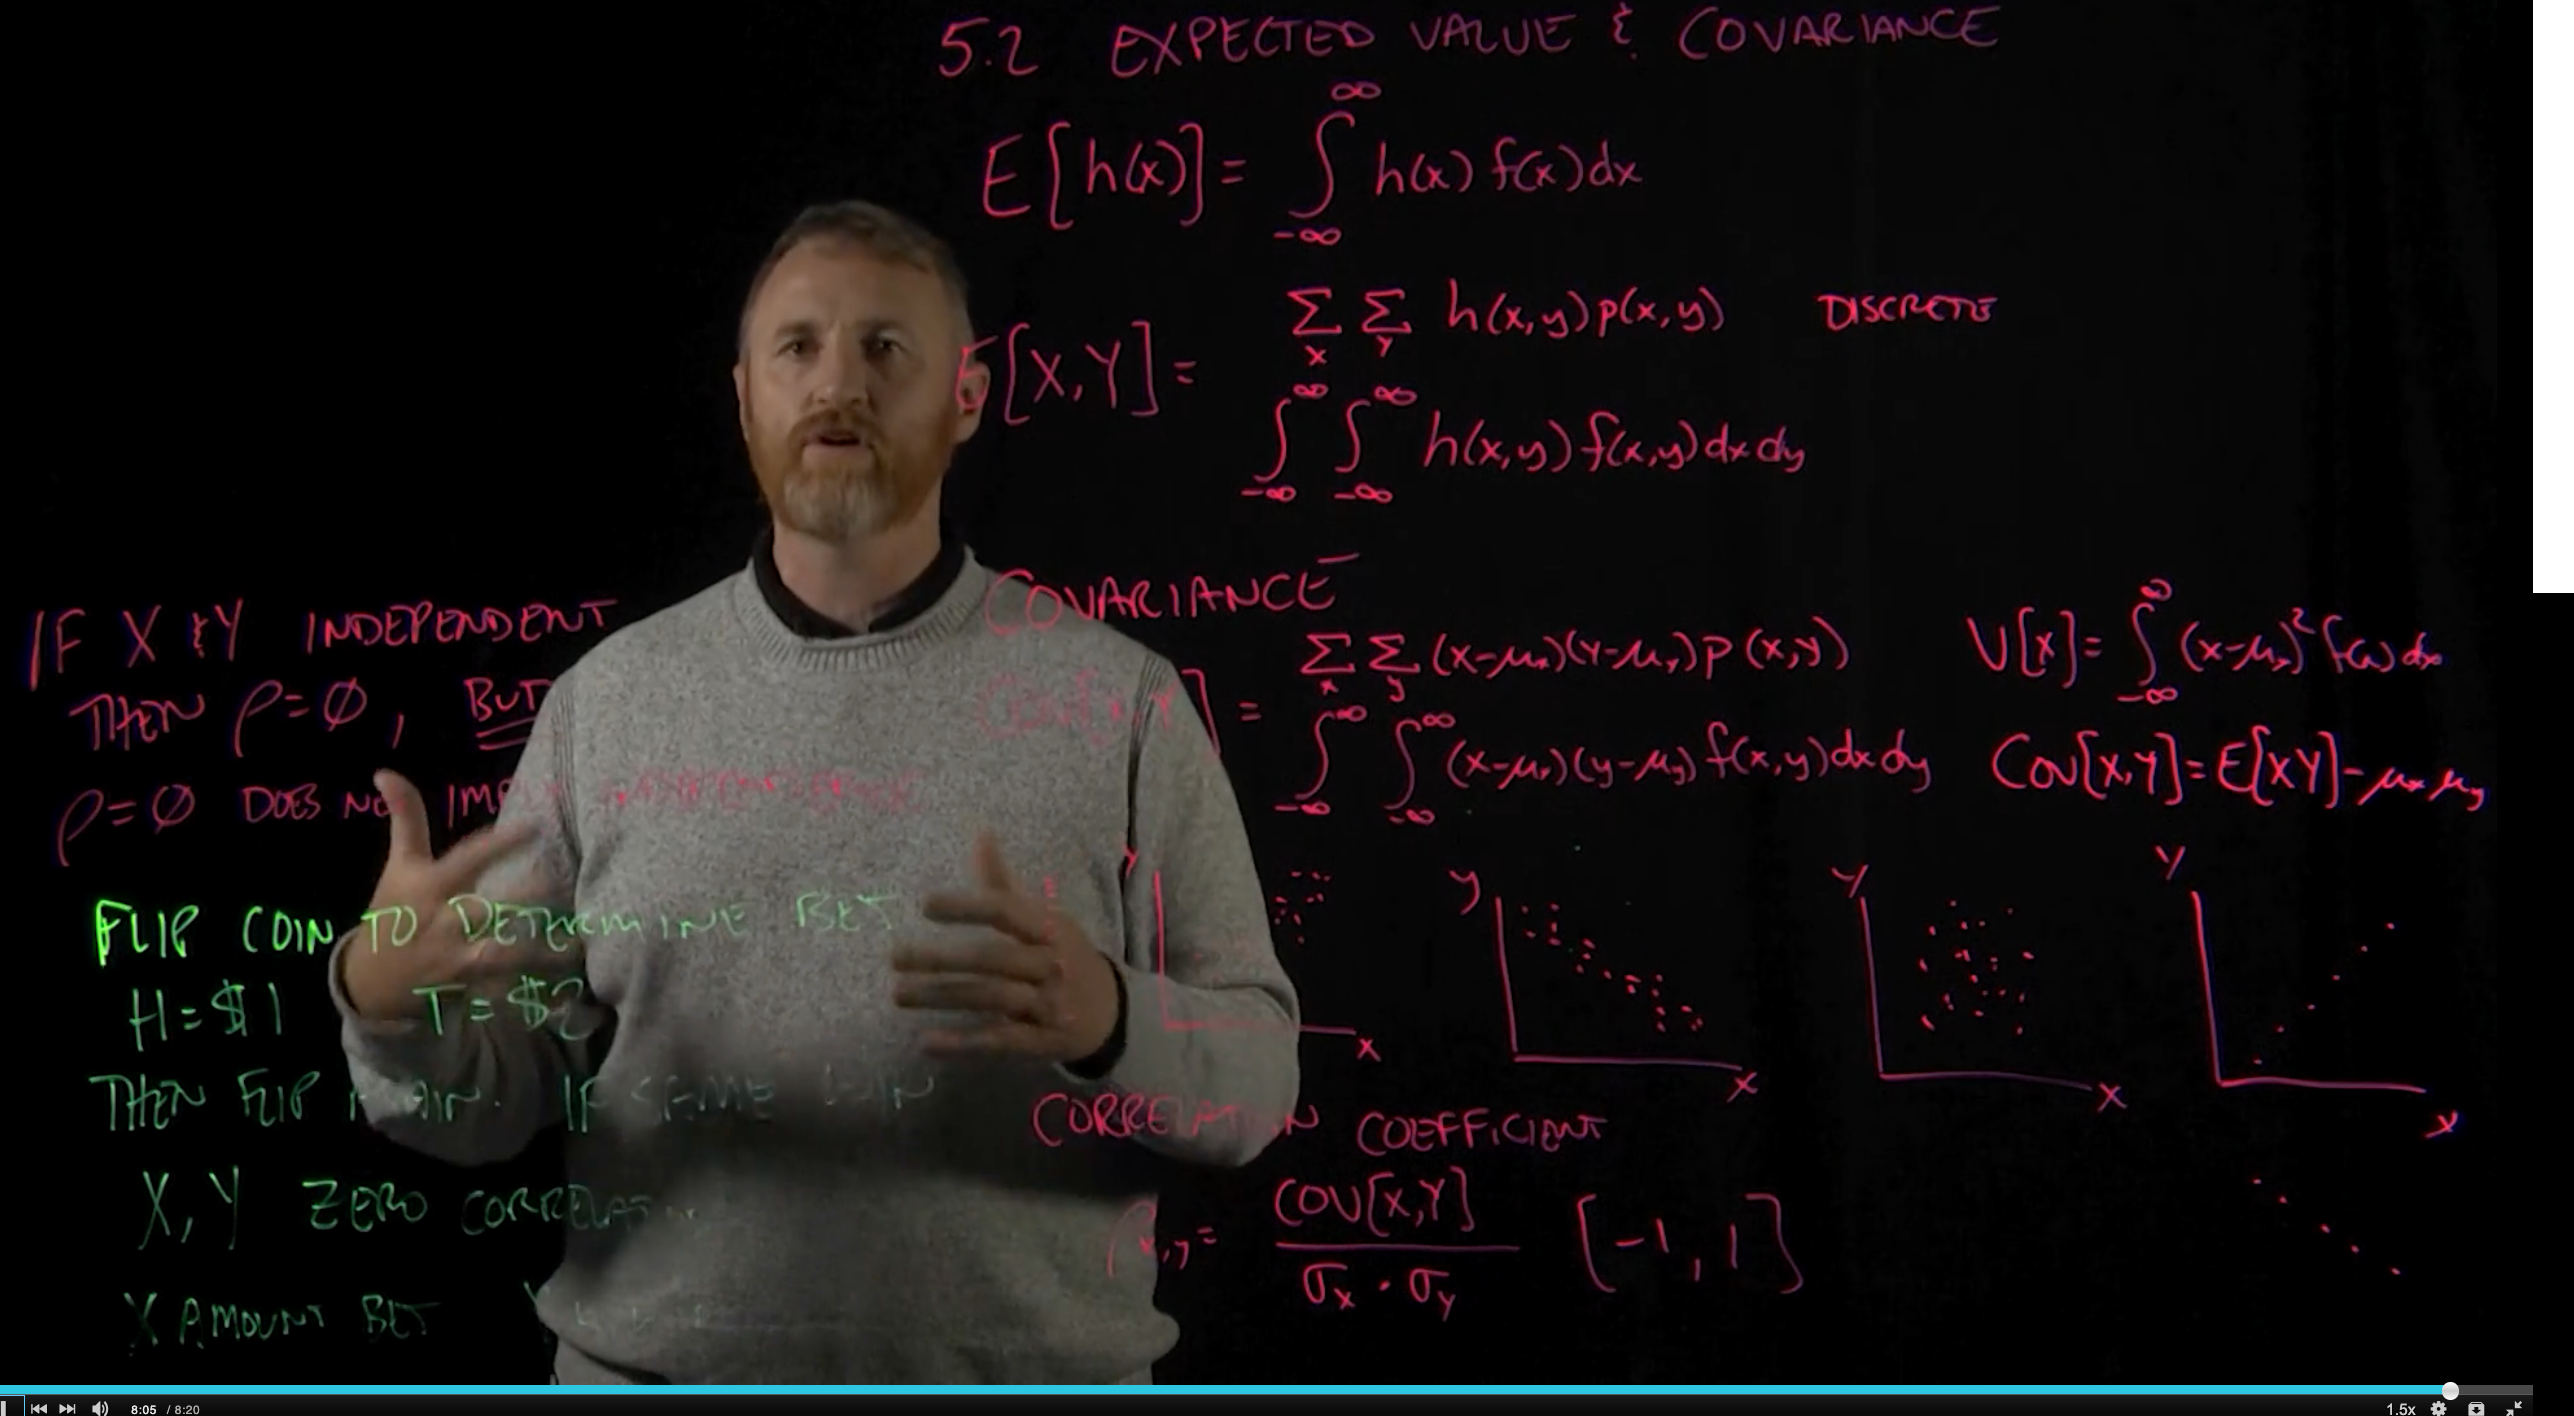 5.2 EXPECTED VALUE & COVARIANCE
E[h(x)] = ∫_{-∞}^{∞} h(x) f(x)dx
E[X,Y] =
∑_x ∑_y h(x,y) p(x,y) DISCRETE
∫_{-∞}^{∞} ∫_{-∞}^{∞} h(x,y) f(x,y) dx dy
COVARIANCE
COV[X,Y] =
∑_x ∑_y (x-μ_x)(y-μ_y) p(x,y)
∫_{-∞}^{∞} ∫_{-∞}^{∞} (x-μ_x)(y-μ_y) f(x,y) dx dy
V[x] = ∫_{-∞}^{∞} (x-μ_x)² f(x) dx
COV[X,Y] = E[XY] - μ_x μ_y
Y X
Y X
Y X
Y X
CORRELATION COEFFICIENT
ρ_{x,y} = COV[X,Y] / σ_X · σ_Y [-1, 1]
IF X & Y INDEPENDENT
THEN ρ=∅, BUT
ρ=∅ DOES NOT IMPLY INDEPENDENCE
FLIP COIN TO DETERMINE BET
H=$1 T=$2
THEN FLIP AGAIN. IF SAME WIN
X, Y ZERO CORRELATION
X AMOUNT BET Y
8:05 / 8:20
1.5x